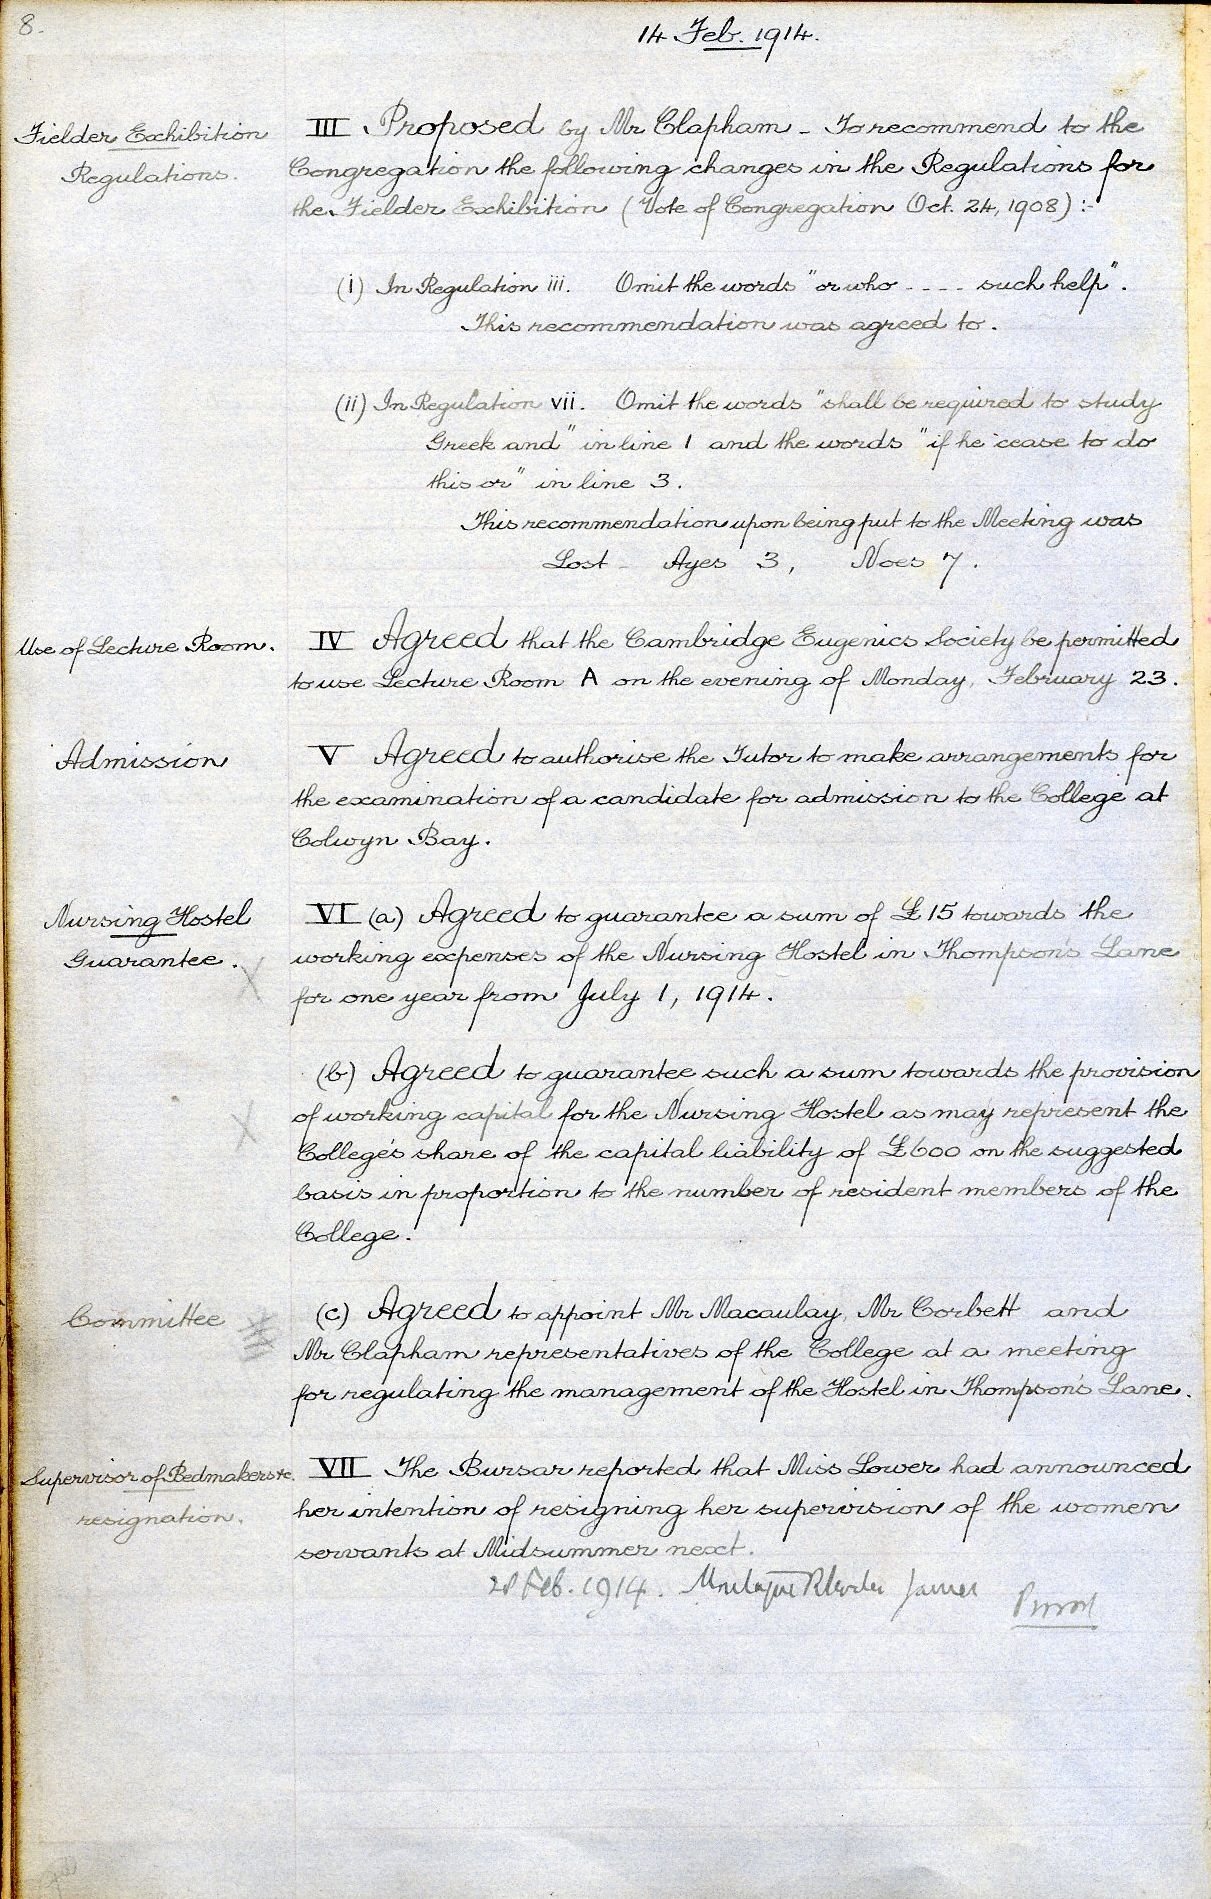 8.
14 Feb. 1914.
Fielder Exhibition
Regulations.
III Proposed by Mr Clapham - To recommend to the
Congregation the following changes in the Regulations for
the Fielder Exhibition (Vote of Congregation Oct. 24, 1908) :-
(i) In Regulation iii. Omit the words "or who - - - - such help".
This recommendation was agreed to.
(ii) In Regulation vii. Omit the words "shall be required to study
Greek and" in line 1 and the words "if he cease to do
this or" in line 3.
This recommendation upon being put to the Meeting was
Lost - Ayes 3, Noes 7.
Use of Lecture Room.
IV Agreed that the Cambridge Eugenics Society be permitted
to use Lecture Room A on the evening of Monday, February 23.
Admission
V Agreed to authorise the Tutor to make arrangements for
the examination of a candidate for admission to the College at
Colwyn Bay.
Nursing Hostel
Guarantee. X
VI (a) Agreed to guarantee a sum of £15 towards the
working expenses of the Nursing Hostel in Thompson's Lane
for one year from July 1, 1914.
X
(b) Agreed to guarantee such a sum towards the provision
of working capital for the Nursing Hostel as may represent the
College's share of the capital liability of £600 on the suggested
basis in proportion to the number of resident members of the
College.
Committee
(c) Agreed to appoint Mr Macaulay, Mr Corbett and
Mr Clapham representatives of the College at a meeting
for regulating the management of the Hostel in Thompson's Lane.
Supervisor of Bedmakers &c.
resignation.
VII The Bursar reported that Miss Lower had announced
her intention of resigning her supervision of the women
servants at Midsummer next.
28 Feb. 1914. Montague Rhodes James Provost